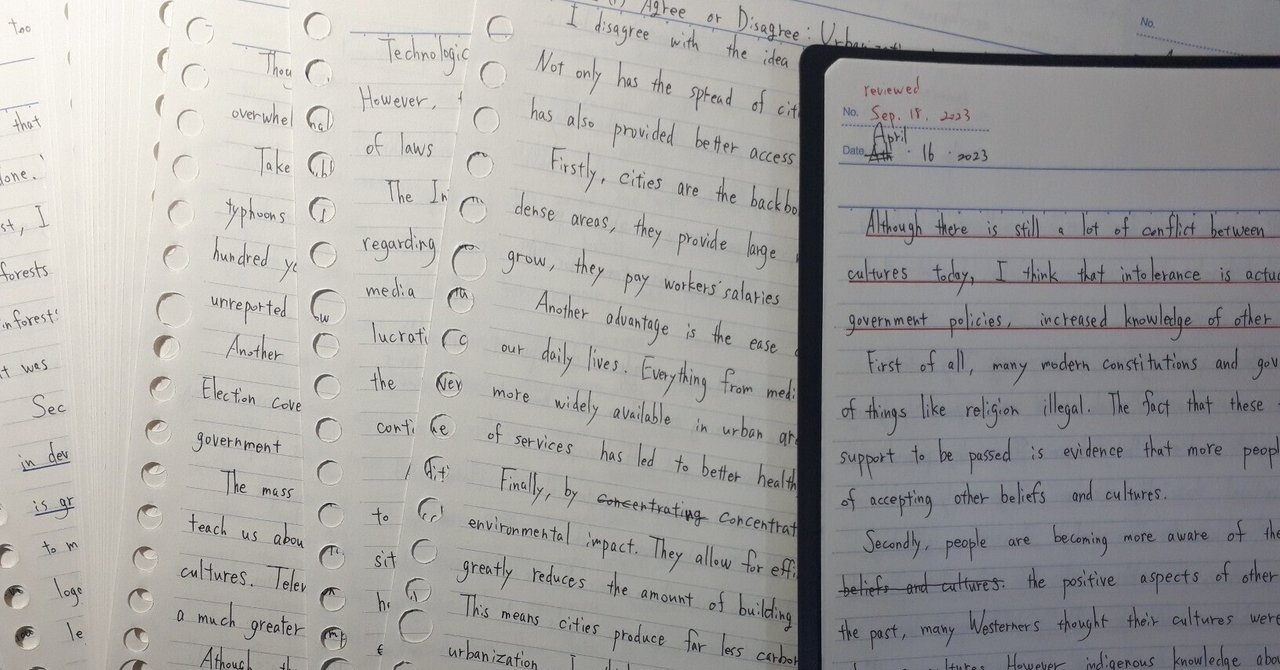 too
that
done.
st, I
forests
inforest
t was
Sec
in dev
is gr
to m
loge
le
Thou
overwhel
Take
typhoons
hundred ye
unreported
Another
Election cove
government
The mass
teach us abou
cultures. Telev
a much greater
Athough th
Technologic
However,
of laws
The In
regarding
media
lucrati
the
conti
to
sit
Agree or Disagree: Urbaniz
I disagree with the idea
Not only has the spread of citi
has also provided better access
Firstly, cities are the backbo
dense areas, they provide large
grow, they pay workers' salaries
Another advantage is the ease
our daily lives. Everything from medi
more widely available in urban are
of services has led to better health
Finally, by concentrating concentrat
environmental impact. They allow for effi
greatly reduces the amount of building
This means cities produce far less carbon
urbanization
No.
reviewed
No. Sep. 18, 2023
April
Date 16 · 2023
Although there is still a lot of conflict between
cultures today, I think that intolerance is actua
government policies, increased knowledge of other
First of all, many modern constitutions and gov
of things like religion illegal. The fact that these
support to be passed is evidence that more peopl
of accepting other beliefs and cultures.
Secondly, people are becoming more aware of the
beliefs and cultures. the positive aspects of other
the past, many Westerners thought their cultures were
However indigenous knowledge abo